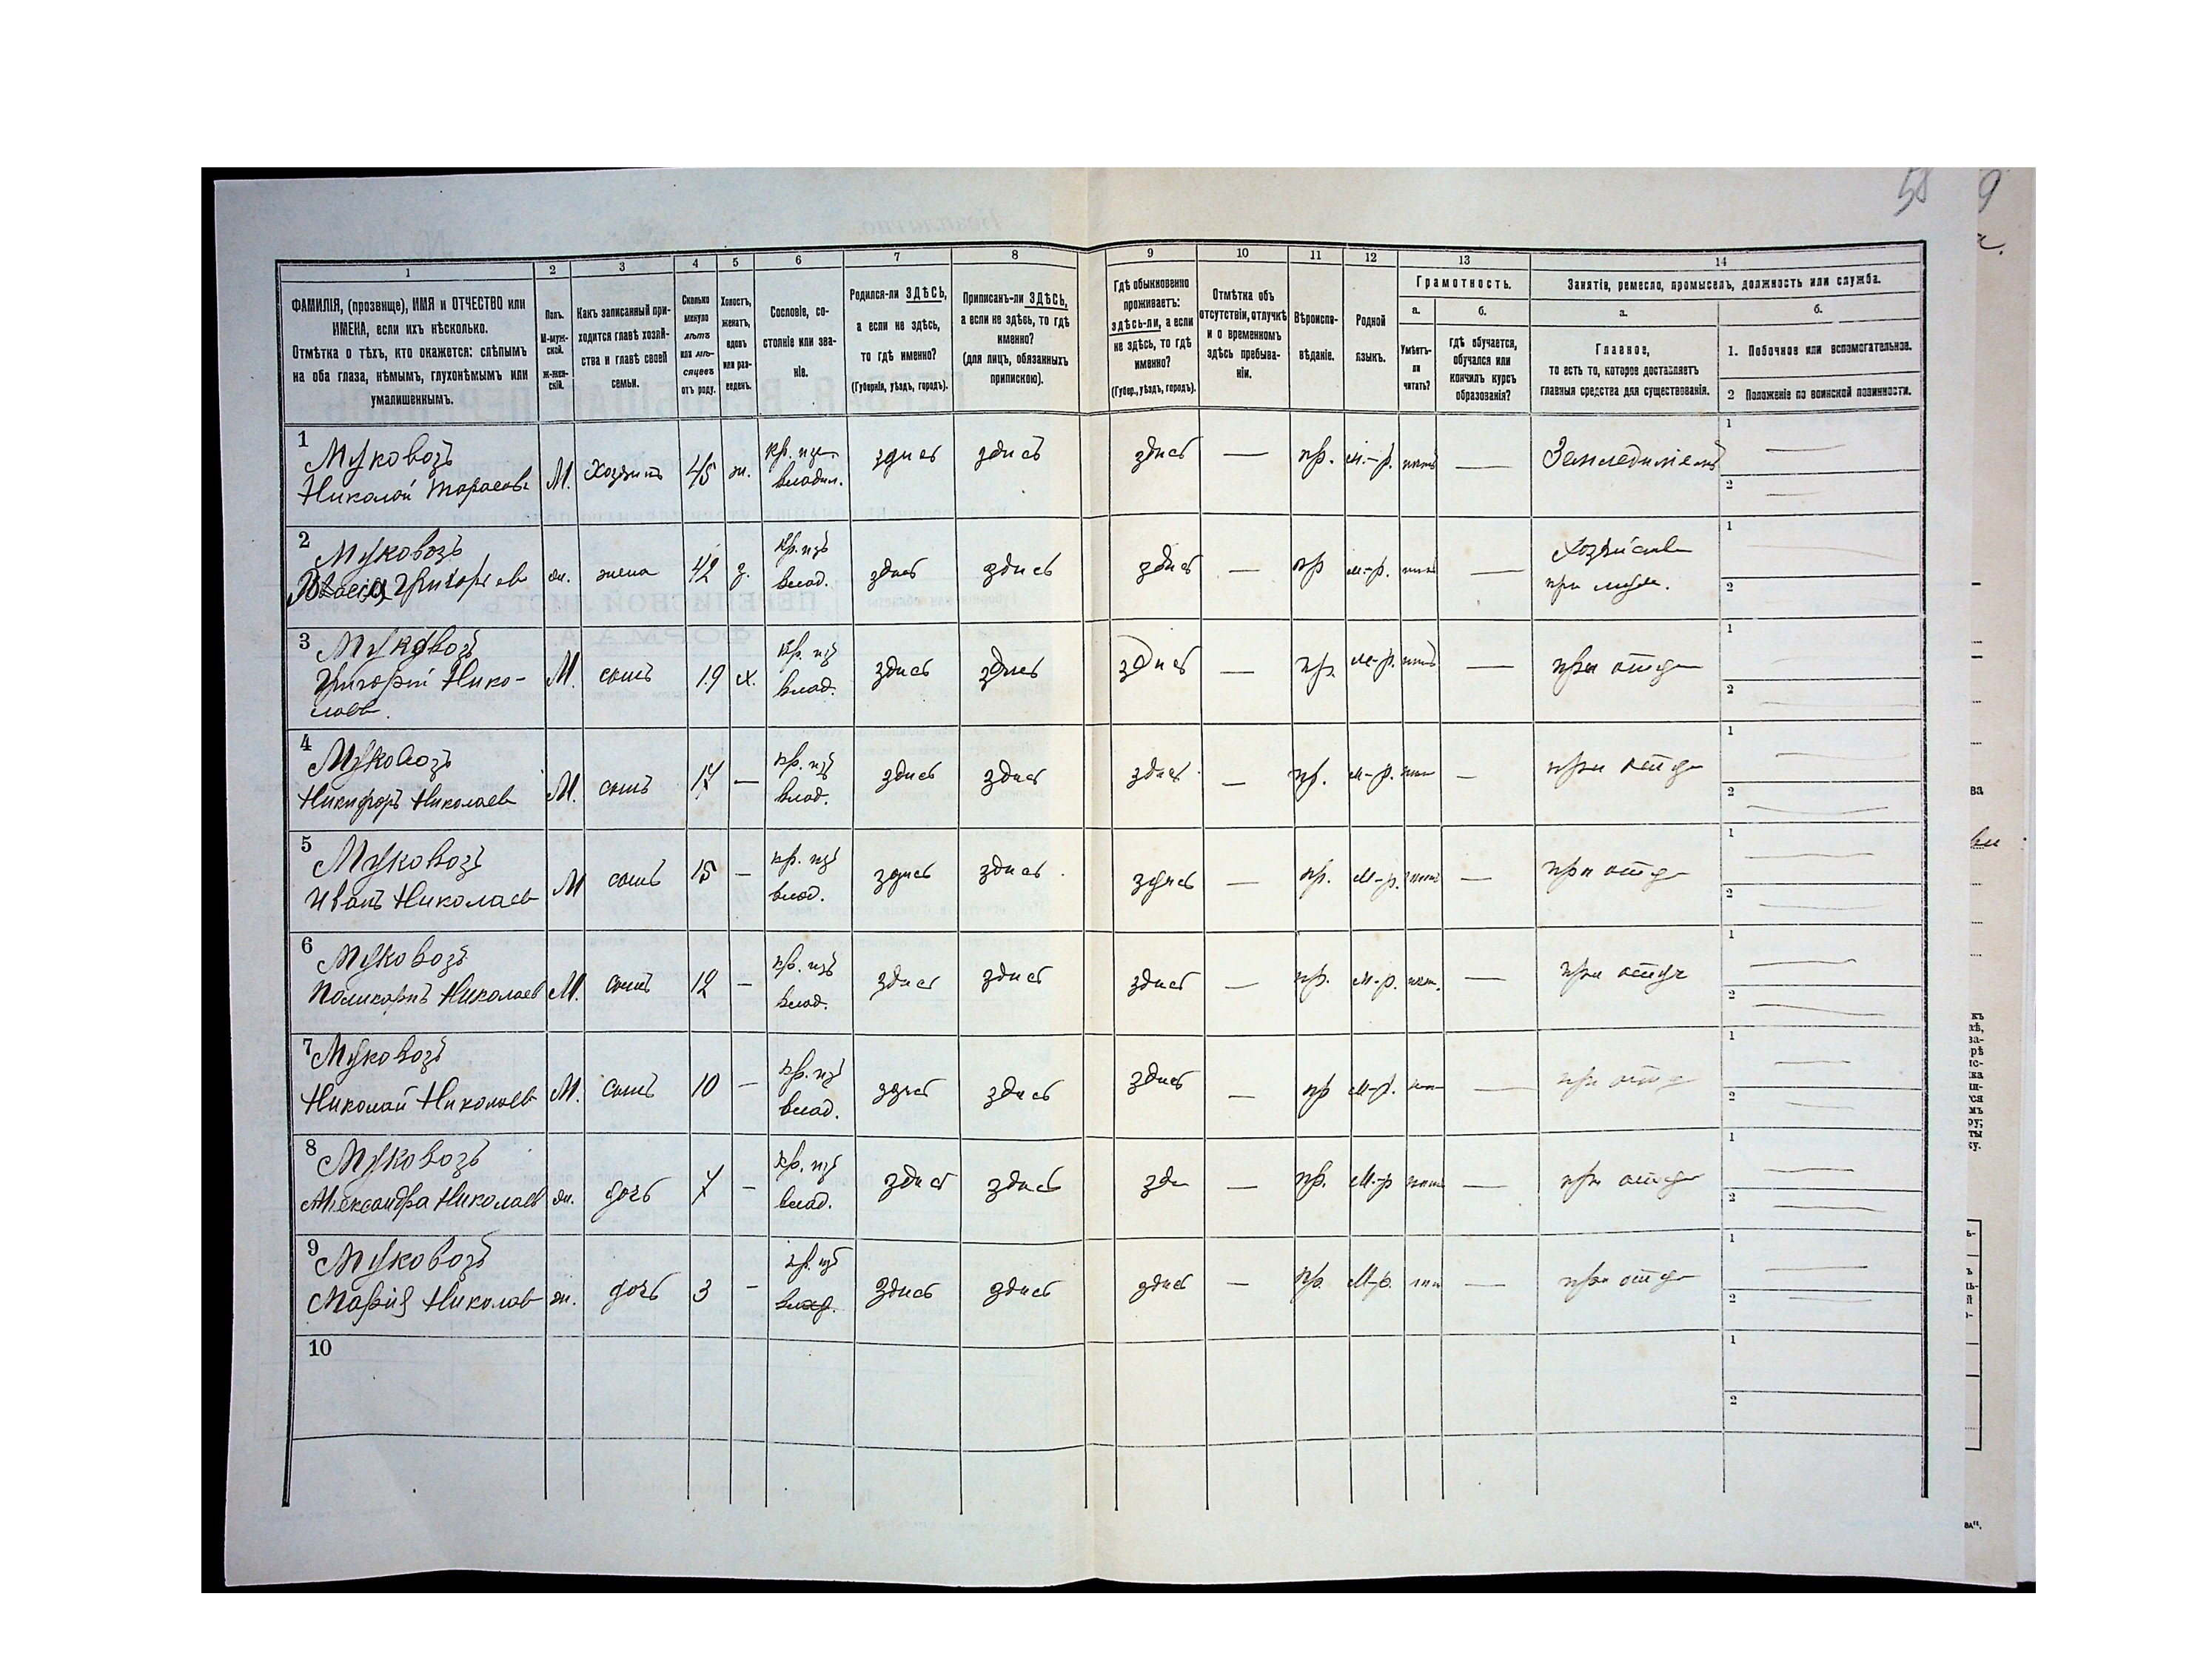 58
9
1
2
3
4
5
6
7
8
9
10
11
12
13
14
ФАМИЛІЯ, (прозвище), ИМЯ и ОТЧЕСТВО или
ИМЕНА, если ихъ нѣсколько.
Отмѣтка о тѣхъ, кто окажется: слѣпымъ
на оба глаза, нѣмымъ, глухонѣмымъ или
умалишеннымъ.
Полъ.
М-муж-
ской.
ж-жен-
скій.
Какъ записанный при-
ходится главѣ хозяй-
ства и главѣ своей
семьи.
Сколько
минуло
лѣтъ
или мѣ-
сяцевъ
отъ роду.
Холостъ,
женатъ,
вдовъ
или раз-
веденъ.
Сословіе, со-
стояніе или зва-
ніе.
Родился-ли ЗДѢСЬ,
а если не здѣсь,
то гдѣ именно?
(Губернія, уѣздъ, городъ).
Приписанъ-ли ЗДѢСЬ,
а если не здѣсь, то гдѣ
именно?
(для лицъ, обязанныхъ
припискою).
Гдѣ обыкновенно
проживаетъ:
здѣсь-ли, а если
не здѣсь, то гдѣ
именно?
(Губер., уѣздъ, городъ).
Отмѣтка объ
отсутствіи, отлучкѣ
и о временномъ
здѣсь пребыва-
ніи.
Вѣроиспо-
вѣданіе.
Родной
языкъ.
Грамотность.
а.
Умѣетъ-
ли
читать?
б.
гдѣ обучается,
обучался или
кончилъ курсъ
образованія?
Занятія, ремесло, промыселъ, должность или служба.
а.
Главное,
то есть то, которое доставляетъ
главныя средства для существованія.
б.
1. Побочное или вспомогательное.
2 Положеніе по воинской повинности.
1 Муковозъ
Николай Тарасовъ М. Хозяинъ 45 ж. кр. изъ владѣл. здись здись здись — пр. м.-р. — 1 —
2 —
2 Муковозъ
Григорьев ж. жена 42 з. кр. изъ влад. здись здись здись — пр м.-р. — 1
при муже. 2
3 Муковозъ
Григорій Нико-
лаев. М. сынъ 19 х. кр. изъ влад. здись здись здись — пр. м-р. — при отце 1
2
4 Муковозъ
Никифоръ Николаев М. сынъ 17 — кр. изъ влад. здись здись здись — пр. м-р. — при отце 1
2
5 Муковозъ
Иванъ Николаев М сынъ 15 — кр. изъ влад. здись здись здись — пр. м-р. — при отце 1
2
6 Муковозъ
Поликарпъ Николаев М. сынъ 12 — кр. изъ влад. здись здись здись — пр. м-р. — при отце 1
2
7 Муковозъ
Николай Николаев М. сынъ 10 — кр. изъ влад. здись здись здись — пр м-р. — при отце 1
2
8 Муковозъ
Александра Николаев ж. дочь 7 — кр. изъ влад. здись здись зди — пр. м-р — при отце 1
2
9 Муковозъ
Марія Николав ж. дочь 3 — кр. изъ влад. здись здись здись — пр. м-р. — при отце 1
2
10 1
2